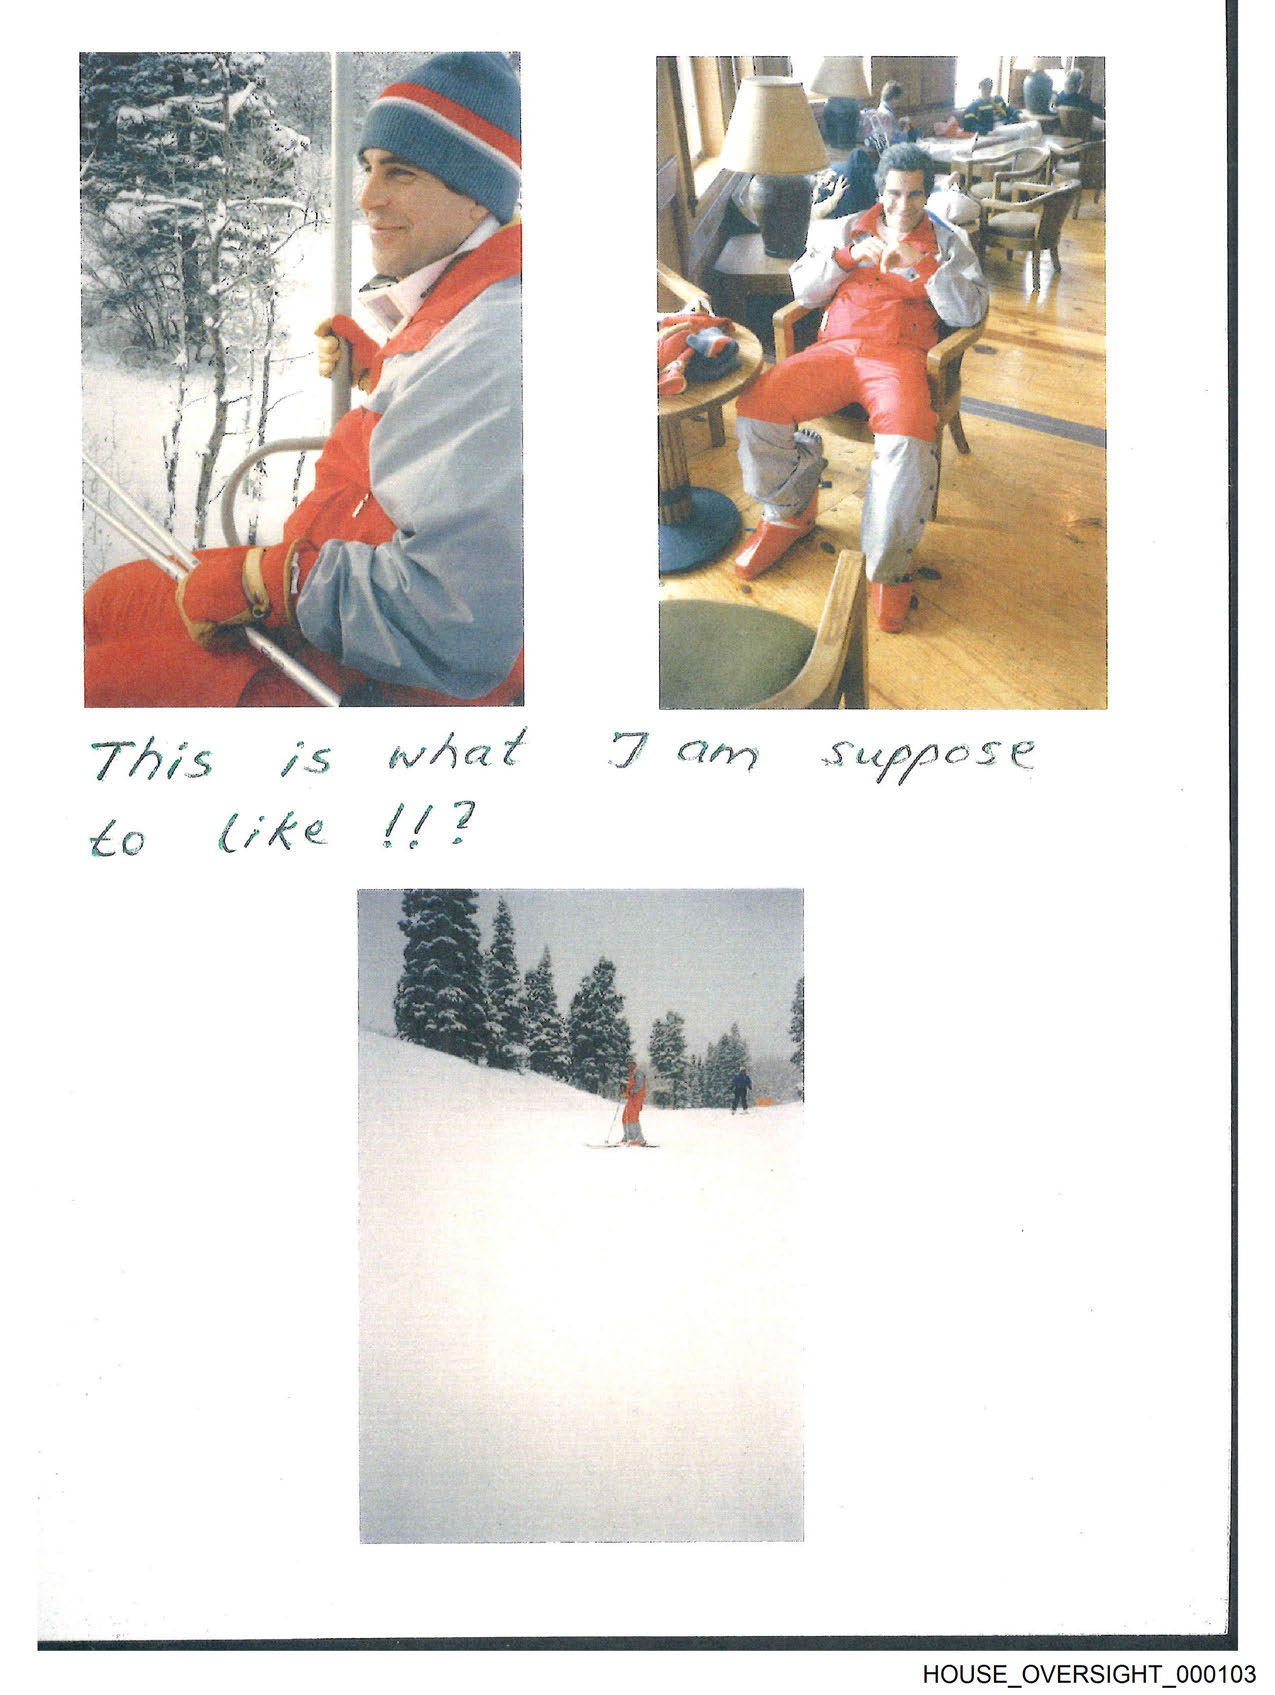 This is what I am suppose
to like !!?
HOUSE_OVERSIGHT_000103